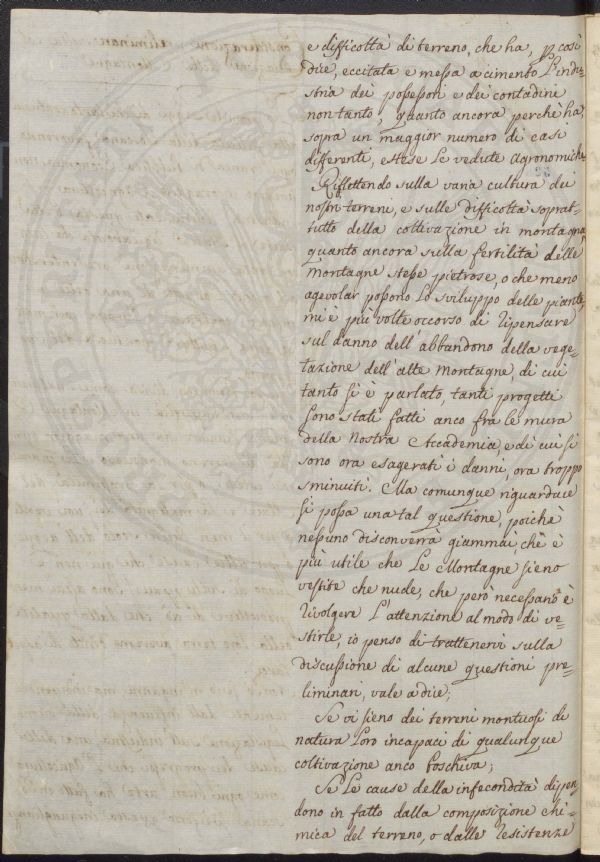 e difficoltà di terreno, che ha, p così
dire, eccitata e messa a cimento l'indu=
stria dei possessori e dei contadini
non tanto, quanto ancora perchè ha,
sopra un maggior numero di casi
differenti, estese le vedute agronomiche.
Riflettendo sulla varia cultura dei
nostri terreni, e sulle difficoltà soprat=
tutto della coltivazione in montagna
quanto ancora sulla fertilità delle
montagne stesse pietrose, o che meno
agevolar possono lo sviluppo delle piante,
mi è più volte occorso di ripensare
sul danno dell'abbandono della vege=
tazione dell'alte montagne, di cui
tanto si è parlato, tanti progetti
sono stati fatti anco fra le mura
della nostra Accademia, e di cui si
sono ora esagerati i danni, ora troppo
sminuiti. Ma comunque riguardare
si possa una tal questione, poichè
nessuno disconverrà giammai, chè è
più utile che le Montagne sieno
vestite che nude, che però necessario è
rivolgere l'attenzione al modo di ve=
stirle, io penso di trattenervi sulla
discussione di alcune questioni pre=
liminari, vale a dire;
Se vi sieno dei terreni montuosi di
natura loro incapaci di qualunque
coltivazione anco boschiva;
Se le cause della infecondità dipen
dono in fatto dalla composizione chi=
mica del terreno, o dalle resistenze